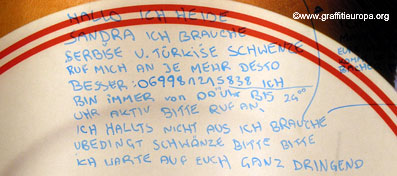 www.graffitieuropa.org
HALLO ICH HEIßE
SANDRA ICH BRAUCHE
SERBISE U. TÜRKISE SCHWENZE
RUF MICH AN JE MEHR DESTO
BESSER: 069981215838 ICH
BIN IMMER VON 00 UHR BIS 24⁰⁰
UHR AKTIV BITTE RUF AN.
ICH HALLTS NICHT AUS ICH BRAUCHE
UBEDINGT SCHWÄNZE BITTE BITTE
WARTE AUF EUCH GANZ DRINGEND